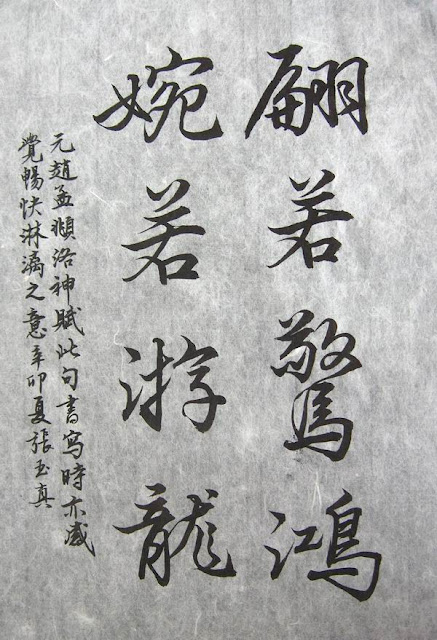 翩若驚鴻
婉若游龍
元趙孟頫洛神賦此句書寫時亦感
覺暢快淋漓之意辛卯夏張玉真